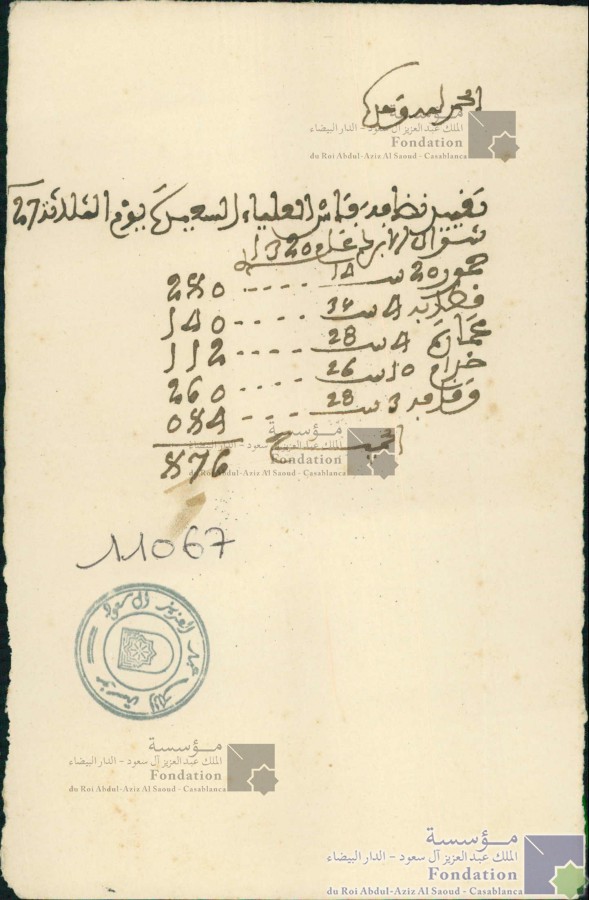 الحمد لله وحده
مؤسسة
الملك عبد العزيز آل سعود - الدار البيضاء
Fondation
du Roi Abdul-Aziz Al Saoud - Casablanca
تقييد نظافة قماش العلياء السعيدة يوم الثلاثاء 27
شوال الأبرك عام 1320
20 ست 14 .... 280
4 ست 34 ... 140
4 ست 28 ... 112
10 ست 26 .... 260
3 ست 28 .... 084
الجميع 876
مؤسسة
الملك عبد العزيز آل سعود - الدار البيضاء
Fondation
du Roi Abdul-Aziz Al Saoud - Casablanca
11067
مؤسسة الملك عبد العزيز آل سعود
مؤسسة
الملك عبد العزيز آل سعود - الدار البيضاء
Fondation
du Roi Abdul-Aziz Al Saoud - Casablanca
مؤسسة
الملك عبد العزيز آل سعود - الدار البيضاء
Fondation
du Roi Abdul-Aziz Al Saoud - Casablanca